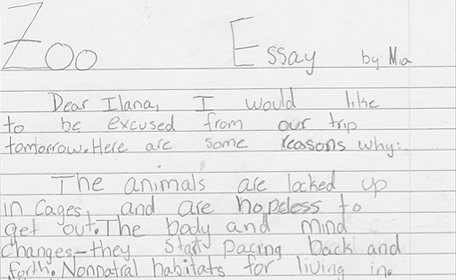 Zoo Essay by: Mia
Dear Ilana, I would like
to be excused from our trip
tomorrow. Here are some reasons why:
The animals are locked up
in cages, and are hopeless to
get out. The body and mind
changes - they start pacing back and
forth. Nonnatral habitats for living in.